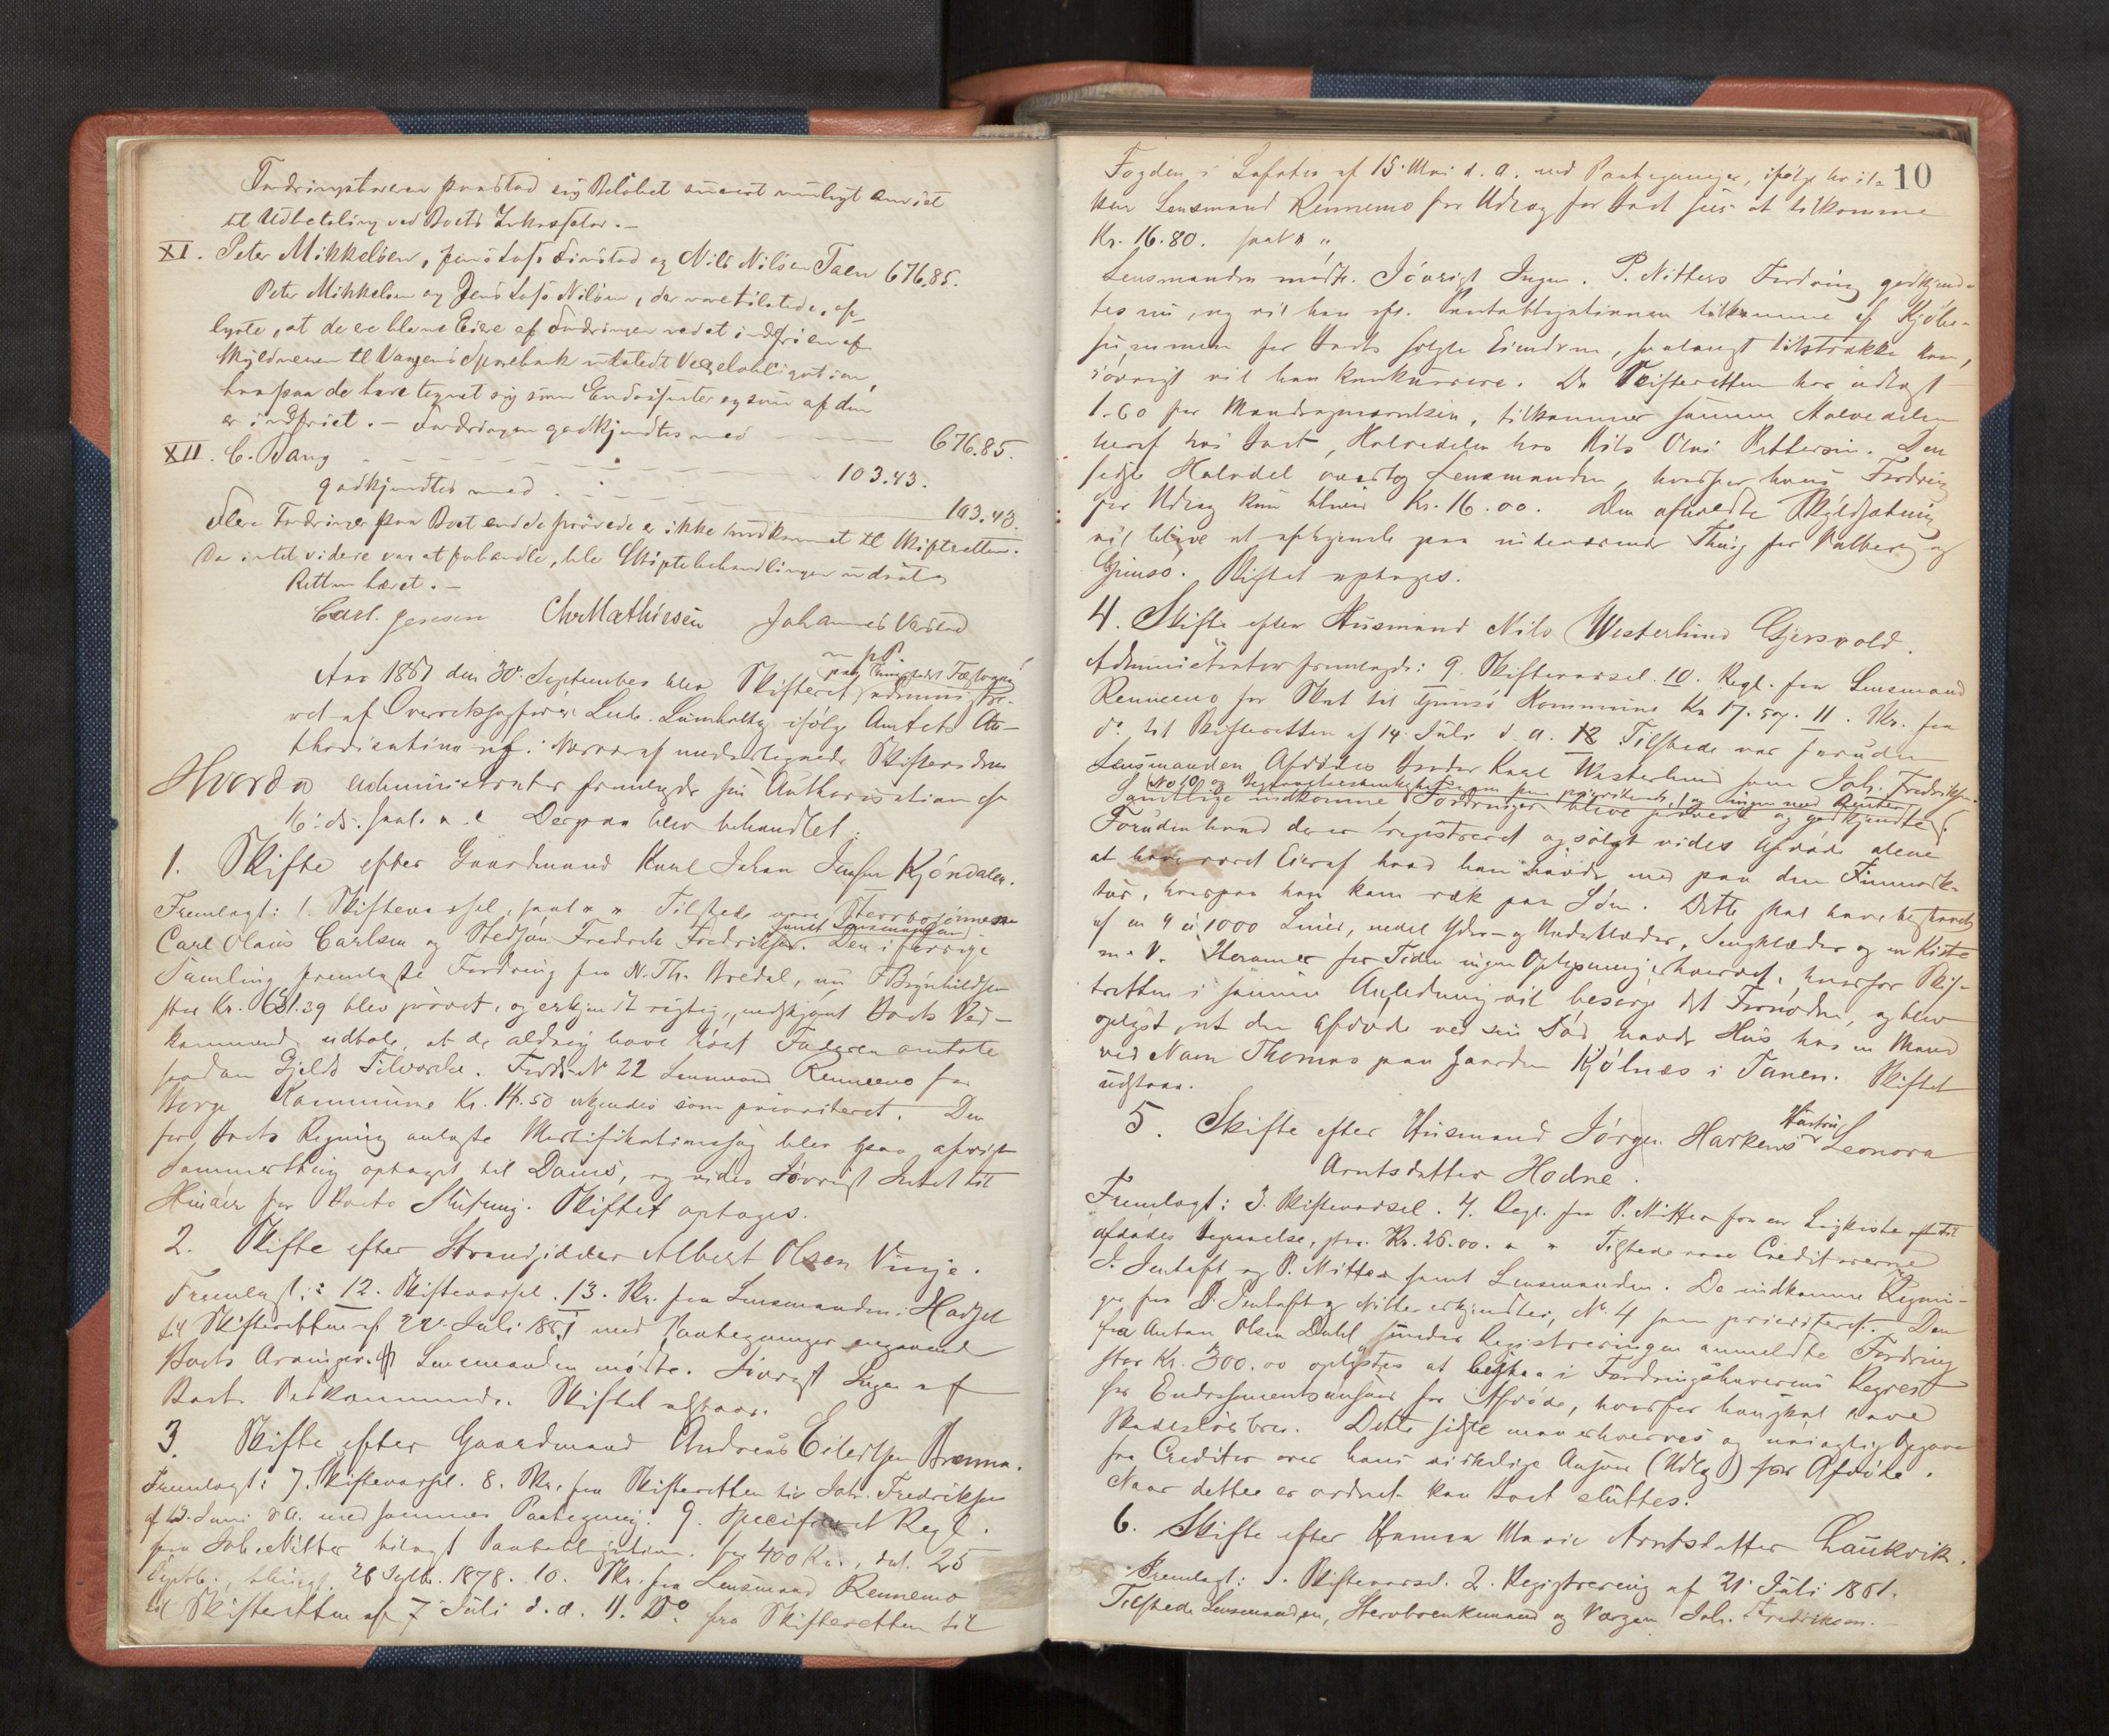 Fordringshaveren paastod sig Beløbet snarest muligt anvist
til Udbetaling ved Boets Inkassator.-
XI. Peter Mikkelsen, Jens Lofs Finstad og Nils Nilsen Taen 676.85.
Peter Mikkelsen og Jens Lofs Nilsen, der vare tilstede, op-
lyste, at de ere blevne Eiere af Fordringen ved at indfri en af
Skyldneren til Vaagens Sparebank udstedt Vexelobligation,
hvorpaa de have tegnet sig som Endossenter og som af dem
er indfriet. - Fordringen godkjendtes med - - - 676.85.
XII. C. Vang - - - - - 103.43.
godkjendtes med - - - 103.43.
Flere Fordringer paa Boet end de prøvede er ikke indkommet til Skifteretten.
Da intet videre var at forhandle, blev Skiftebehandlingen udsat og
Retten hævet. -
Carl Jensen Chr Mathiesen Johannes Vastad
m. p. P.
Aar 1881 den 30. September blev Skifteret paa Thingstedet Fæstvaag adminis tre-
ret af Overretssagfører Lud. Lumholtz ifølge Amtets Au-
thorisation af: Nærværende undertegnede Skiftevidner
Hvorda Administrator fremlagde sin Authorisation af
16. ds. saal. Derpaa blev behandlet:
1. Skifte efter Gaardmand Karl Johan Jensen Kjøndalen.
Fremlagt: 1. Skiftevarsel, saal. Tilstede vare Stervbosønnen
Carl Olaus Carlsen og Stedsøn Fredrik Fredriksen samt Lensmanden. Den i forrige
Samling fremlagte Fordring fra N. Th. Bredal, nu Brynhildsen
stor Kr. 61.39 blev prøvet, og erkjendt rigtig, uagtet Boets Ved-
kommende udtale, at de aldrig have hørt Faderen omtale
saadan Gjelds Tilværelse. Fordr. No 22 Lensmand Rennemo for
Borge Kommune Kr. 14.50 erkjendes som prioriteret. Den
for Boets Regning anlagte Mortifikationssag blev paa afvigt
Sommerthing optaget til Doms, og vides iøvrigt Intet til
Hinder for Boets Slutning. Skiftet optages.
2. Skifte efter Strandsidder Albert Olsen Vinje.
Fremlagt: 12. Skiftevarsel. 13. Skr. fra Lensmanden i Hadsel
til Skifteretten af 22. Juli 1881 med Paategninger angaaende
Boets Arvinger. Lensmanden mødte. Iøvrigt Ingen af
Boets Vedkommende. Skiftet udstaar.
3. Skifte efter Gaardmand Andreas Eilertsen Brenna.
Fremlagt: 7. Skiftevarsel. 8. Skr. fra Skifteretten til Joh. Fredriksen
af 13. Juni d. A. med sammes Paategning. 9. Specificeret Regl.
fra Joh. Nitter bilagt Pantobligation for 400 Kr., dat. 25
Septbr., thingl. 28 Septbr. 1878. 10. Skr. fra Lensmand Rennemo
til Skifteretten af 7 Juli d. A. 11. Do fra Skifteretten til
10
Fogden i Lofoten af 15. Mai d. A. med Paategninger, ifølge hvil-
ken Lensmand Rennemo for Udlæg for Boet siges at tilkomme
Kr. 16.80. saal.
Lensmanden mødte. Iøvrigt Ingen. P. Nitters Fordring godkjend-
tes nu, og vil han efter Pantobligationen tilkomme af Kjøbe-
summen for Boets solgte Eiendom, saalangt tilstrække kan,
iøvrigt vil han konkurrere. Da Skifteretten har udlagt
1.60 for Mandragnærelsen, tilkommer samme Halvdelen
heraf hos Boet, Halvdelen hos Nils Olai Pettersen. Den
sidste Halvdel overtog Lensmanden, hvorfor hans Fordring
for Udlæg kun bliver Kr. 16.00. Den afholdte Skyldsætning
vil blive at afhjemle paa indeværende Thing for Valberg og
Gimsø. Skiftet optages.
4. Skifte efter Husmand Nils Westerlund Gjersvold.
Administrator fremlagde: 9. Skiftevarsel. 10. Regl. fra Lensmand
Rennemo for Skat til Gimsø Kommune Kr 17.50. 11. Skr. fra
do til Skifteretten af 14. Juli d. A. 12 Tilstede var foruden
Lensmanden Afdødes Broder Karl Westerlund samt Joh. Fredriksen.
No 10 og Begravelsesomkostningerne som prioriterede, og ingen med Renter
Samtlige indkomne Fordringer bleve prøvede og godkjendte.
Foruden hvad der er registreret og solgt vides Afdøde alene
at have været Eier af hvad han havde med paa den Finmark-
tur, hvorpaa han kom væk paa Søen. Dette skal have bestaaet
af en 4 à 1000 Liner, nedel Yder- og Underklæder, Sengklæder og en Kiste
m. V. Heromer for Tiden ingen Oplysning erhvervet, hvorfor Skif-
teretten i samme Anledning vil besørge det Fornødne, og blev
oplyst, at den Afdøde ved sin Død havde Hus hos en Mand
ved Navn Thomas paa Gaarden Kjølnæs i Tanen. Skiftet
udstaar.
5. Skifte efter Husmand Jørgen Harkens Hustru Leonora
Arntsdatter Hodne.
Fremlagt: 3. Skiftevarsel. 4. Regl. fra P. Nitter for en Ligkiste til
Afdødes Begravelse, stor Kr. 26.00. Tilstede vare Creditorerne
J. Jentoft og P. Nitter samt Lensmanden. De indkomne Regnin-
ger fra J. Jentoft og Nitter erkjendtes, No. 4 som prioriteret. Den
fra Anton Olsen Dahl under Registreringen anmeldte Fordring
stor Kr. 300.00 oplystes at bestaa i Fordringshaverens Regres
for Endossementsansvar for Afdøde, hvorfor han skal have
Skadesløsbrev. Dette sidste maa erhverves og nøiagtig Opgave
fra Creditor over hans virkelige Ansvar (Udlæg) for Afdøde.
Naar dette er ordnet kan Boet sluttes.
6. Skifte efter Hanna Marie Arntsdatter Laukvik.
Fremlagt: 1. Skiftevarsel. 2. Registrering af 21. Juli 1881.
Tilstede Lensmanden, Stervboenkemand og Værgen Joh. Fredriksen.-